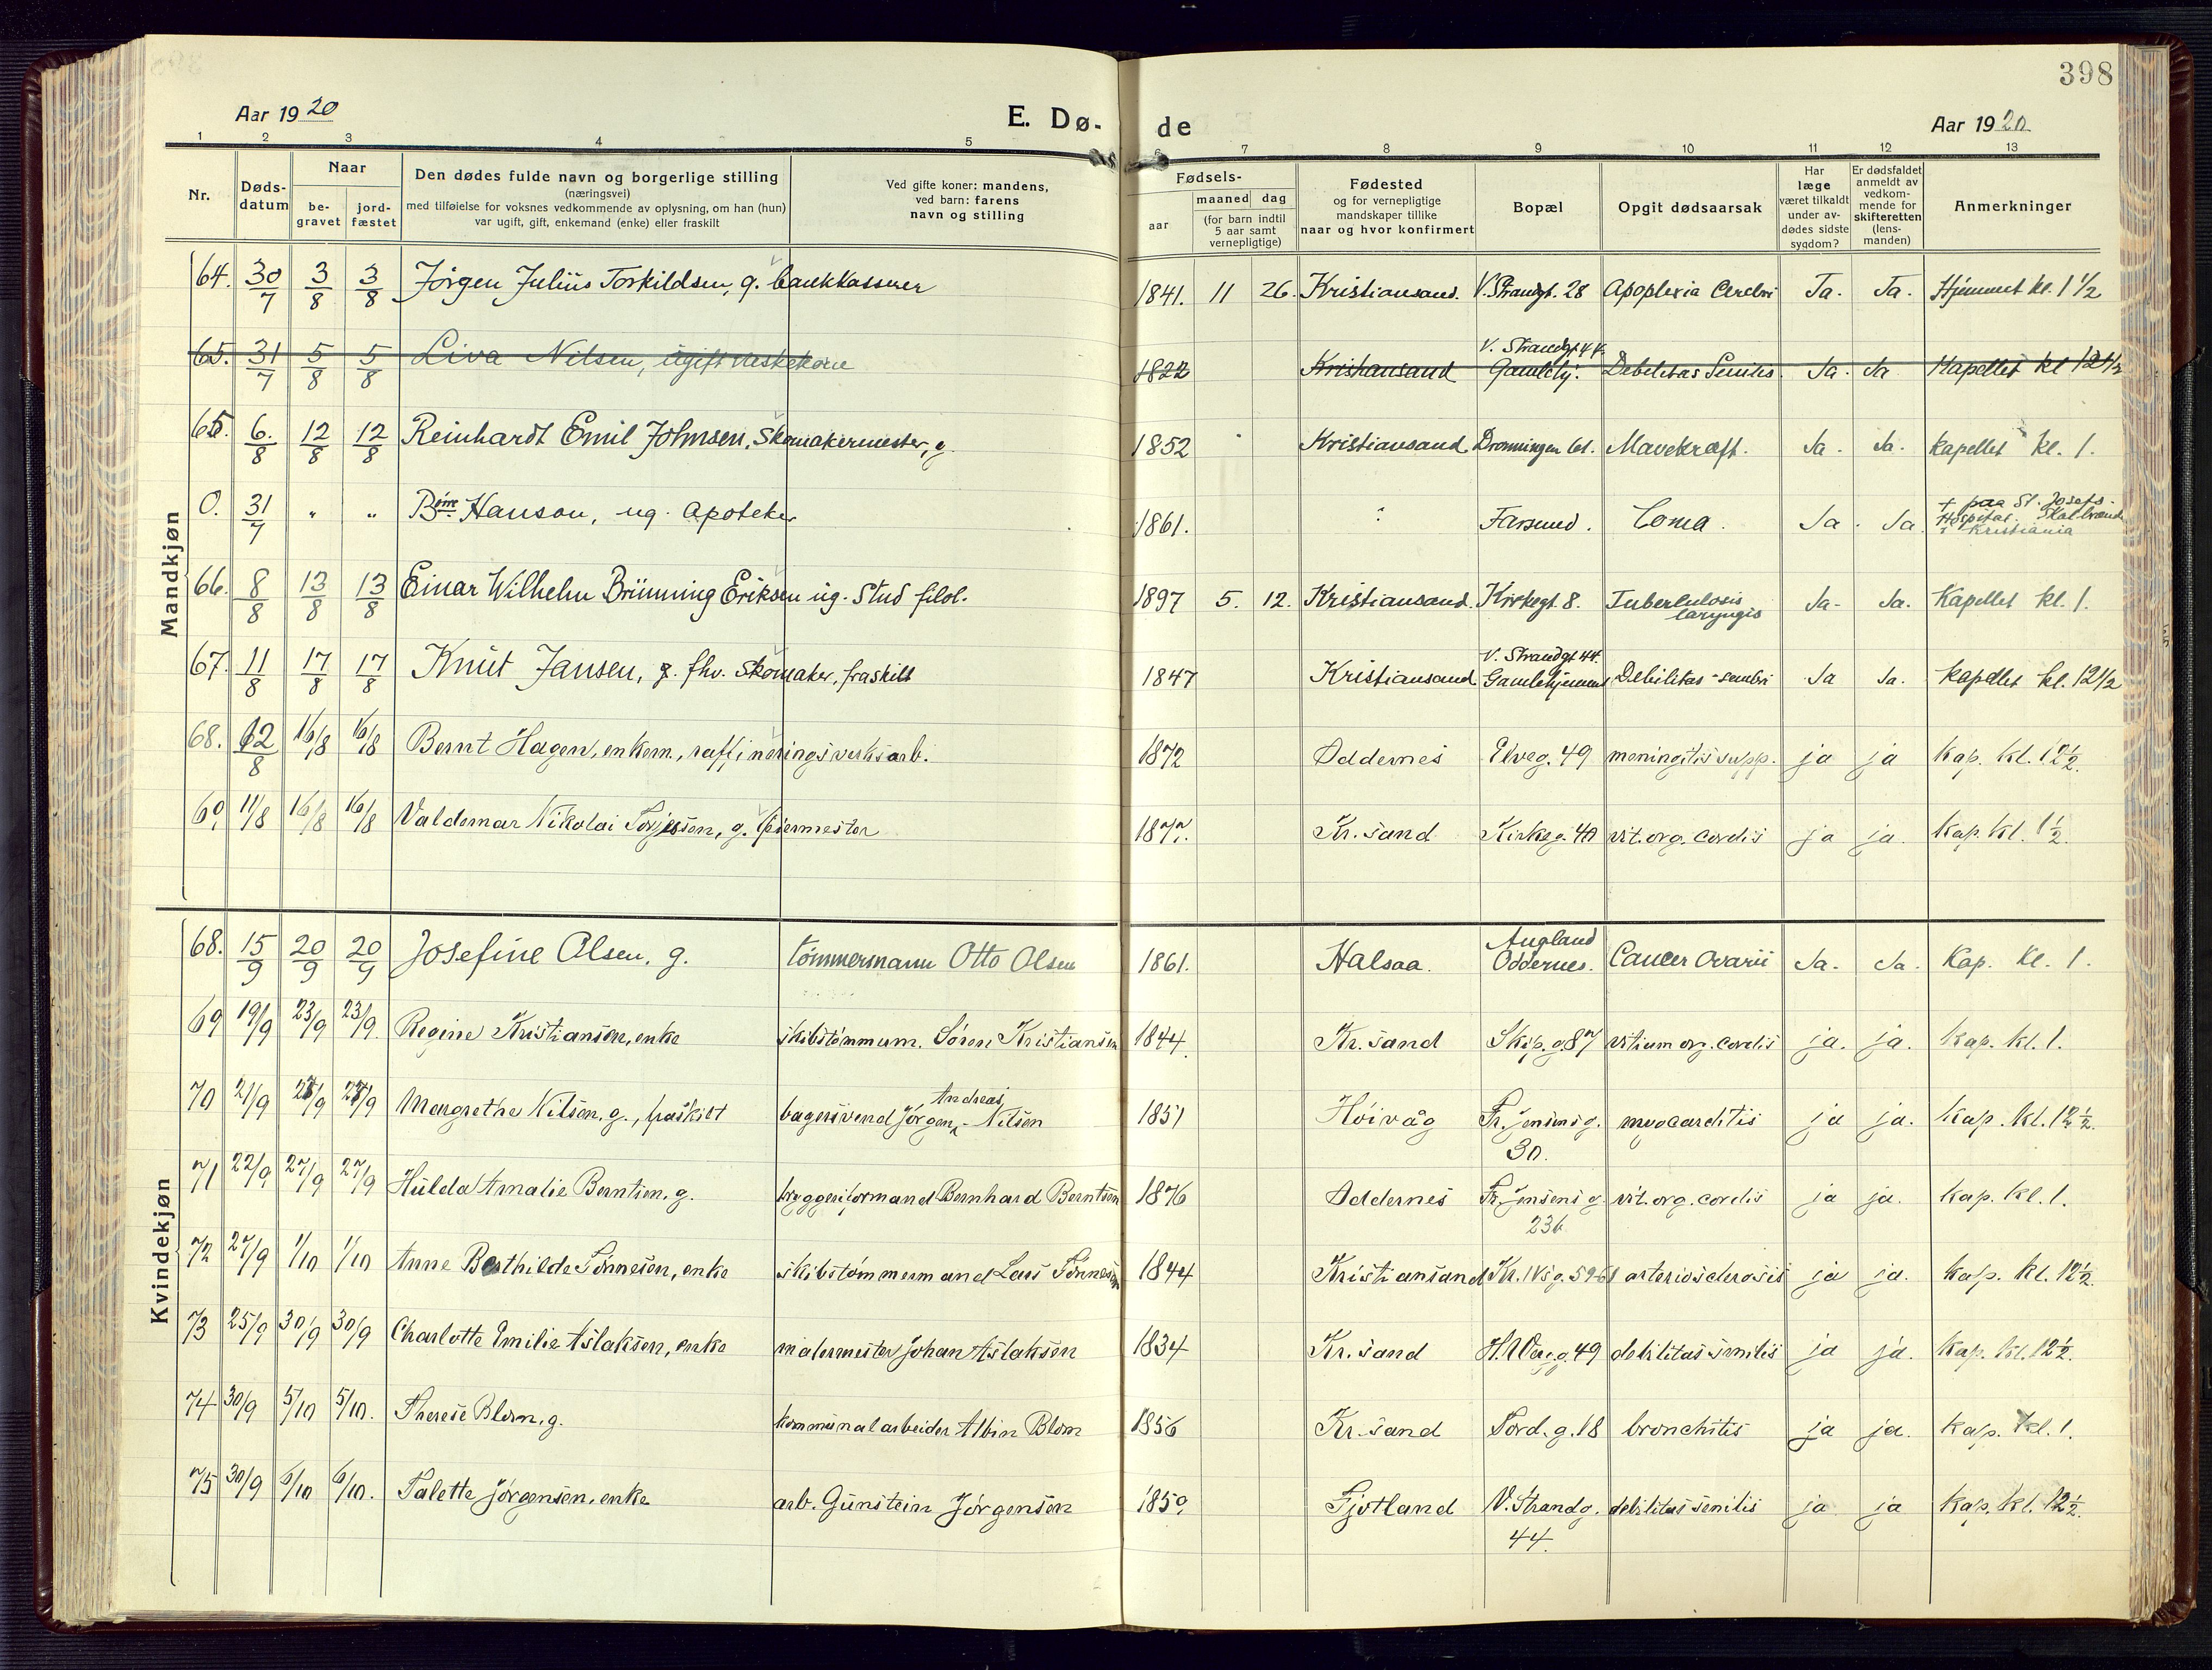 398
Aar 1920 E. Dø- de Aar 1920
1 2 3 4 5 7 8 9 10 11 12 13
Nr. Døds-datum Naar be-gravet jord-fæstet Den dødes fulde navn og borgerlige stilling (næringsvei) med tilføielse for voksnes vedkommende av oplysning, om han (hun) var ugift, gift, enkemand (enke) eller fraskilt Ved gifte koner: mandens, ved barn: farens navn og stilling Fødsels- aar maaned dag (for barn indtil 5 aar samt vernepligtige) Fødested og for vernepligtige mandskaper tillike naar og hvor konfirmert Bopæl Opgit dødsaarsak Har læge været tilkaldt under av-dødes sidste sygdom? Er dødsfaldet anmeldt av vedkom-mende for skifteretten (lens-manden) Anmerkninger
Mandkjøn
64. 30/7 3/8 3/8 Jørgen Julius Torkildsen, g. bankkasserer 1841. 11 26. Kristiansand. V. Strandgt. 28 Apoplexia Cerebri Ja. Ja. Hjemmet kl. 1 1/2
65. 31/7 5/8 5/8 Liva Nilsen, ugift vaskekone 1822 Kristiansand V. Strandgt 44 Gamlehj. Debilitas Senilis Ja. Ja Kapellet kl 12 1/2
65. 6./8 12/8 12/8 Reinhardt Emil Johnsen, Skomakermester, g. 1852 Kristiansand Dronningen 61. Mavekræft. Ja. Ja. Kapellet kl. 1.
0. 31/7 " " Hanson, ug. Apoteker 1861. " Farsund. Coma. Ja. Ja. + paa St. Josefs Hospital. Kristiania
66. 8/8 13/8 13/8 Einar Wilhelm Brünning Eriksen ug. Stud filol. 1897 5. 12. Kristiansand. Kirkegt. 8. Tuberkulosis laryngis Ja. Ja. Kapellet kl. 1.
67. 11/8 17/8 17/8 Knut Jansen, g. fhv. Skomaker, fraskilt 1847 Kristiansand V. Strandgt 44. Gamlehjemmet Debilitas Ja Ja. Kapellet kl. 12 1/2
68. 12/8 16/8 16/8 Bernt Hagen, enkem., raffineringsverksarb. 1872 Oddernes Elveg. 49 meningitis supp. ja ja Kap. kl. 12 1/2.
69. 11/8 16/8 16/8 Valdemar Nikolai Torjessen, g. feiermester 1877. Kr.sand Kirkeg. 40 vit. org. cordis ja ja. Kap. kl. 1 1/2.
Kvindekjøn
68. 15/9 20/9 20/9 Josefine Olsen, g. tømmermann Otto Olsen 1861. Halsaa. Augland Oddernes. Cancer Ovarii Ja. Ja. Kap. kl. 1.
69 19/9 23/9 23/9. Regine Kristiansen, enke skibstømmerm. Søren Kristiansen 1844. Kr.sand Skip.g. 87 vitium org. cordis ja. ja. Kap. kl. 1.
70 21/9 27/9 27/9 Margrethe Nilsen, g., fraskilt bagersvend Jørgen Andreas Nilsen 1851 Høivåg Fr. Jensens g. 30. myocarditis ja ja. Kap. kl. 12 1/2.
71 22/9 27/9 27/9 Hulda Amalie Berntsen, g. bryggeriformand Bernhard Berntsen 1876 Oddernes Fr. Jensens g 23b vit. org. cordis ja ja. Kap. kl. 1.
72 27/9 1/10 1/10 Anne Berthilde Tønnesen, enke skibstømmermand Lars Tønnesen 1844 Kristiansand Kr. IVs g. 59-61 arteriosclerosis ja ja. Kap. kl. 12 1/2.
73 25/9 30/9 30/9 Charlotte Emilie Aslaksen, enke malermester Johan Aslaksen 1834 Kr.sand H. Werg.g. 49 debilitas senilis ja ja. Kap. kl. 12 1/2.
74 30/9 5/10 5/10. Therese Blom, g. kommunalarbeider Albin Blom 1856 Kr.sand Tord.g. 18 bronchitis ja ja. Kap. kl. 1.
75 30/9 6/10 6/10. Talette Jørgensen, enke arb. Gunstein Jørgensen 1850, Fjotland V. Strandg. 44. debilitas senilis ja ja Kap. kl. 12 1/2.